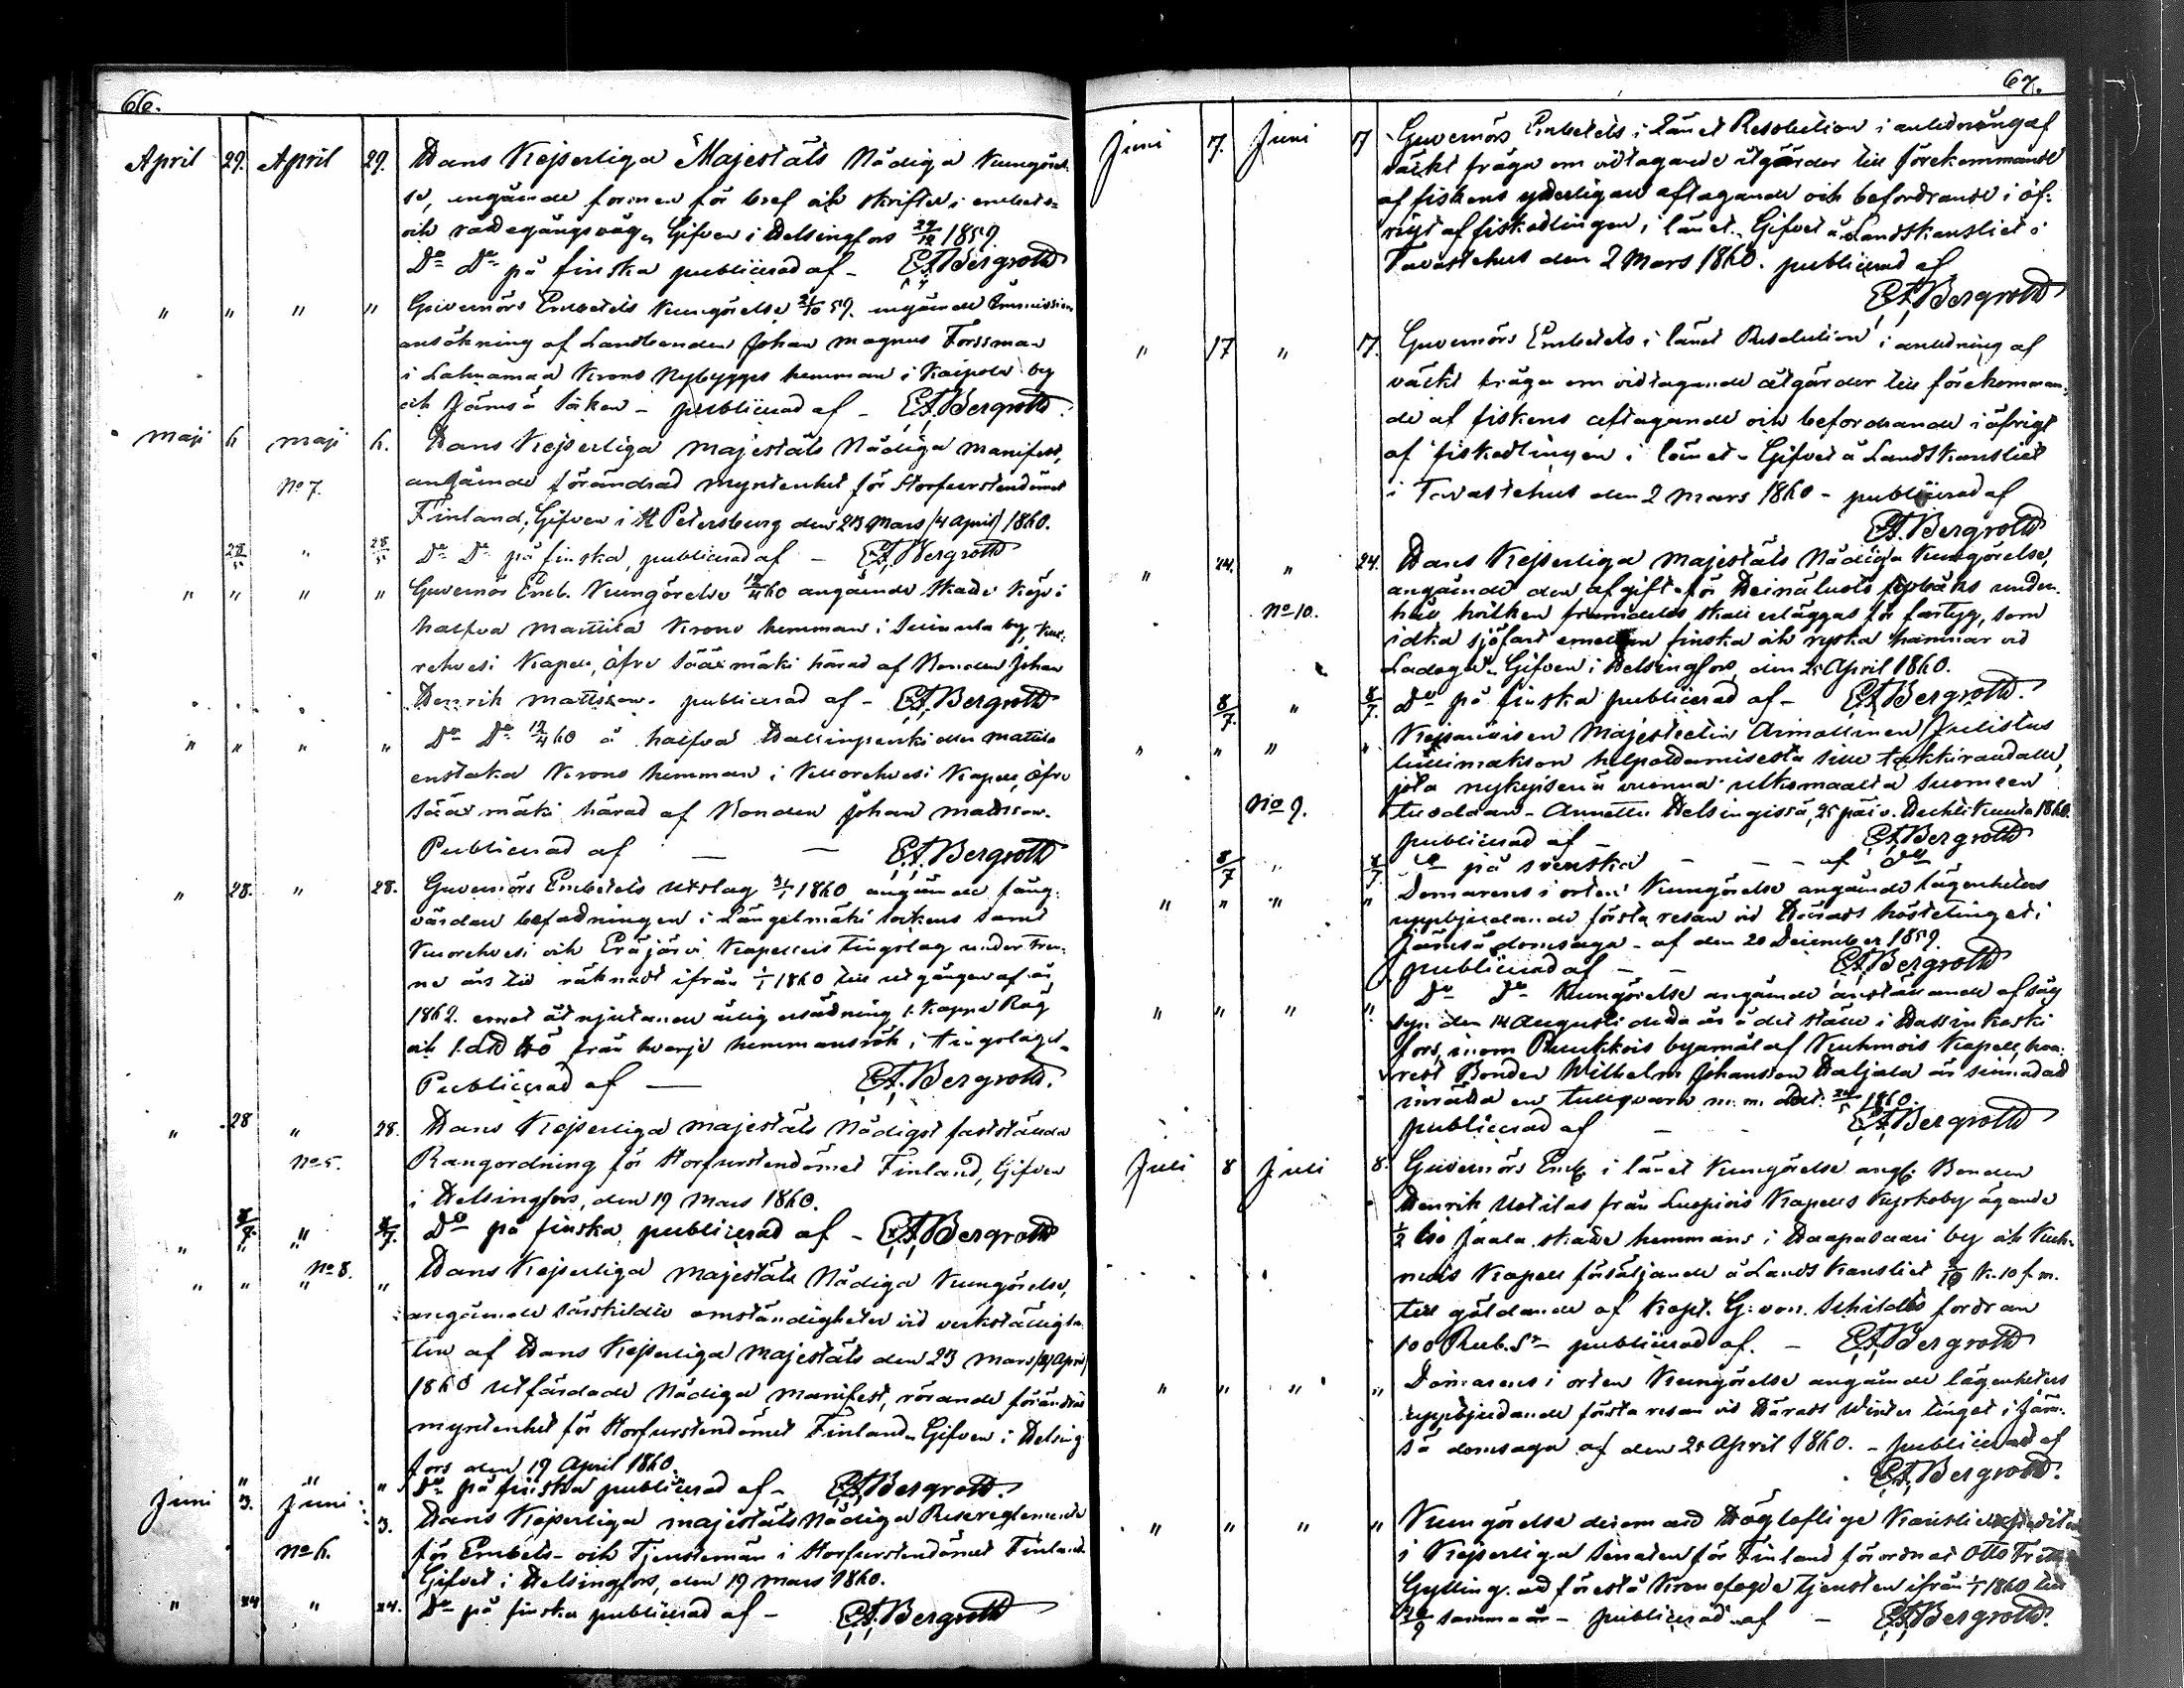 66.
April 29. April 29. Hans Kejserliga Majestäts Nådiga Kungörel-
se, angående formen för bref och skrifter i embets-
och rättegångsväg. Gifven i Helsingfors 1859.
Do Do på finska publicerad af - Bergroth
" " " " Guvernörs Embetets Kungörelse 59. angående
ansökning af Landbonden Johan Magnus Forssman
i Lahnamaa Krono Nybygges hemman i Kaipola by
och Jämsä Socken - publicerad af - Bergroth.
Maji 6 Maji 6. Hans Kejserliga Majestäts Nådiga Manifest,
No 7. angående förändrad myntenhet för Storfurstendömet
Finland, Gifven i St Petersburg den 23 Mars (4 April) 1860.
28/5 " 28/5 Do Do på finska, publicerad af - Bergroth
" " " " Guvernörs Emb. Kungörelse 60 angående Skatte köp i
halfva Mattila Krono hemman i by, Kuo-
rehvesi Kapell, öfre Sääxmäki härad af Bonden Johan
Henrik Mattsson. publicerad af - Bergroth
" " " " Do Do 60 å halfva eller Mattila
enstaka Krono hemman i Kuorehvesi Kapell, öfre
Sääxmäki härad af Bonden Johan Mattsson.
Publicerad af — — Bergroth
" 28. " 28. Guvernörs Embetets utslag 1860 angående fång-
värdar befattningen i Längelmäki Sockens samt
Kuorehvesi och Eräjärvi Kapellers Tingslag under tren-
ne års tid räknadt ifrån 1/1 1860 till utgången af år
1862. emot åtnjutande årlig ersättning 1. Kappe Råg
och 1. från hvarje hemmansrök i tingslaget.
Publicerad af — Bergroth.
" 28 " 28. Hans Kejserliga Majestäts Nådigst fastställda
No 5. Rangordning för Storfurstendömet Finland, Gifven
i Helsingfors, den 19 Mars 1860.
8/7. " 8/7. Do på finska publicerad af - Bergroth
No 8.
" " " " Hans Kejserliga Majestäts Nådiga Kungörelse,
angående särskilda omständigheter vid verkställighe-
ten af Hans Kejserliga Majestäts den 23 Mars (4 April)
1860 utfärdade Nådiga Manifest, rörande förändrad
myntenhet för Storfurstendömet Finland. Gifven i Helsing-
fors den 19 April 1860.
" " " Do på finska publicerad af - Bergroth.
Juni 3. Juni 3. Hans Kejserliga Majestäts Nådiga Resereglemente
No 6. för Embets- och Tjenstemän i Storfurstendömet Finland.
Gifvet i Helsingfors, den 19 Mars 1860.
" 24 " 24. Do på finska publicerad af - Bergroth
67.
Juni 17. Juni 17 Guvernörs Embetets i Länet Resolution i anledning af
väckt fråga om vidtagande åtgärder till förekommande
af fiskens ytterligare aftagande och befordrande i öf-
rigt af fiskodlingen i länet. Gifvet å Landskansliet i
Tavastehus den 2 Mars 1860. publicerad af
Bergroth
" 17 " 17. Guvernörs Embetets i länet Resolution i anledning af
väckt fråga om vidtagande åtgärder till förekomman-
de af fiskens aftagande och befordrande i öfrigt
af fiskodlingen i länet - Gifvet å Landskansliet
i Tavastehus den 2 Mars 1860 - publicerad af
Bergroth
" 24. " 24. Hans Kejserliga Majestäts Nådiga Kungörelse,
angående den afgift för Heinäluoto båks under-
No 10. håll hvilken framdeles skall erläggas för fartyg, som
idka sjöfart emellan finska och ryska hamnar vid
Ladoga. Gifven i Helsingfors, den 25 April 1860.
8/7. " 8/7. Do på finska publicerad af - Bergroth.
" " " " Keisarillisen Majesteetin Armollinen Julistus
tullimakson helpoittamisesta
jota nykyisenä vuonna ulkomaalta Suomeen
No 9. tuodaan - Annettu Helsingissä, 25 päiv. Huhtikuuta 1860.
publicerad af - Bergroth
8/7 " 8/7 Do på svenska - - - af Do
" " " " Domarens i orten Kungörelse angående lägenheters
uppbjudande första resan vid Härads höstetinget i
Jämsä domsaga - af den 20 December 1859.
publicerad af - - Bergroth
" " " " Do Do Kungörelse angående anställande af
syn den 14 Augusti detta år å det ställe i
fors, inom Puukkois byamål af Kuhmois Kapell, hva-
rest Bonden Wilhelm Johansson Haljala är sinnad att
inrätta en tullqvarn m. m. 1860.
publicerad af - - Bergroth
Juli 8 Juli 8. Guvernörs Emb. i länet Kungörelse ang: Bonden
Henrik Uotilas från Luopiois Kapells Kyrkoby ägande
1/2 Iso Jaala skatte hemmans i Haapasaari by och Kuh-
mois Kapell försäljande å Landskansliet k. 10 f. m.
till gäldande af Kapt. G. von Schildts fordran
100 Rub. Sr - publicerad af. - Bergroth
" " " " Domarens i orten Kungörelse angående lägenheters
uppbjudande första resan vid Härads Winter tinget i Jäm-
sä domsaga af den 25 April 1860. - publicerad af
Bergroth.
" " " " Kungörelse derom att Högloflige
i Kejserliga Senaten för Finland förordnat Otto
Gylling. att förestå Kronofogde tjensten ifrån 1860 till
samma år - publicerad af - Bergroth.